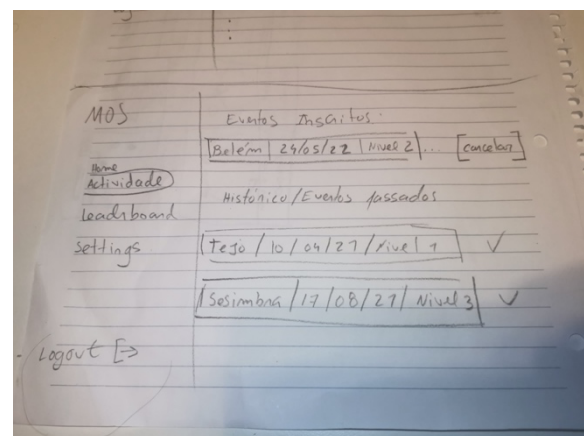 MOS
Home
Actividade
Leaderboard
Settings
Logout [->
Eventos Inscritos:
Belém | 24/05/22 | Nivel 2 | ... [cancelar]
Histórico/Eventos passados
Tejo / 10 / 04 / 21 / Nivel 1 ✓
Sesimbra / 17 / 08 / 21 / Nivel 3 ✓